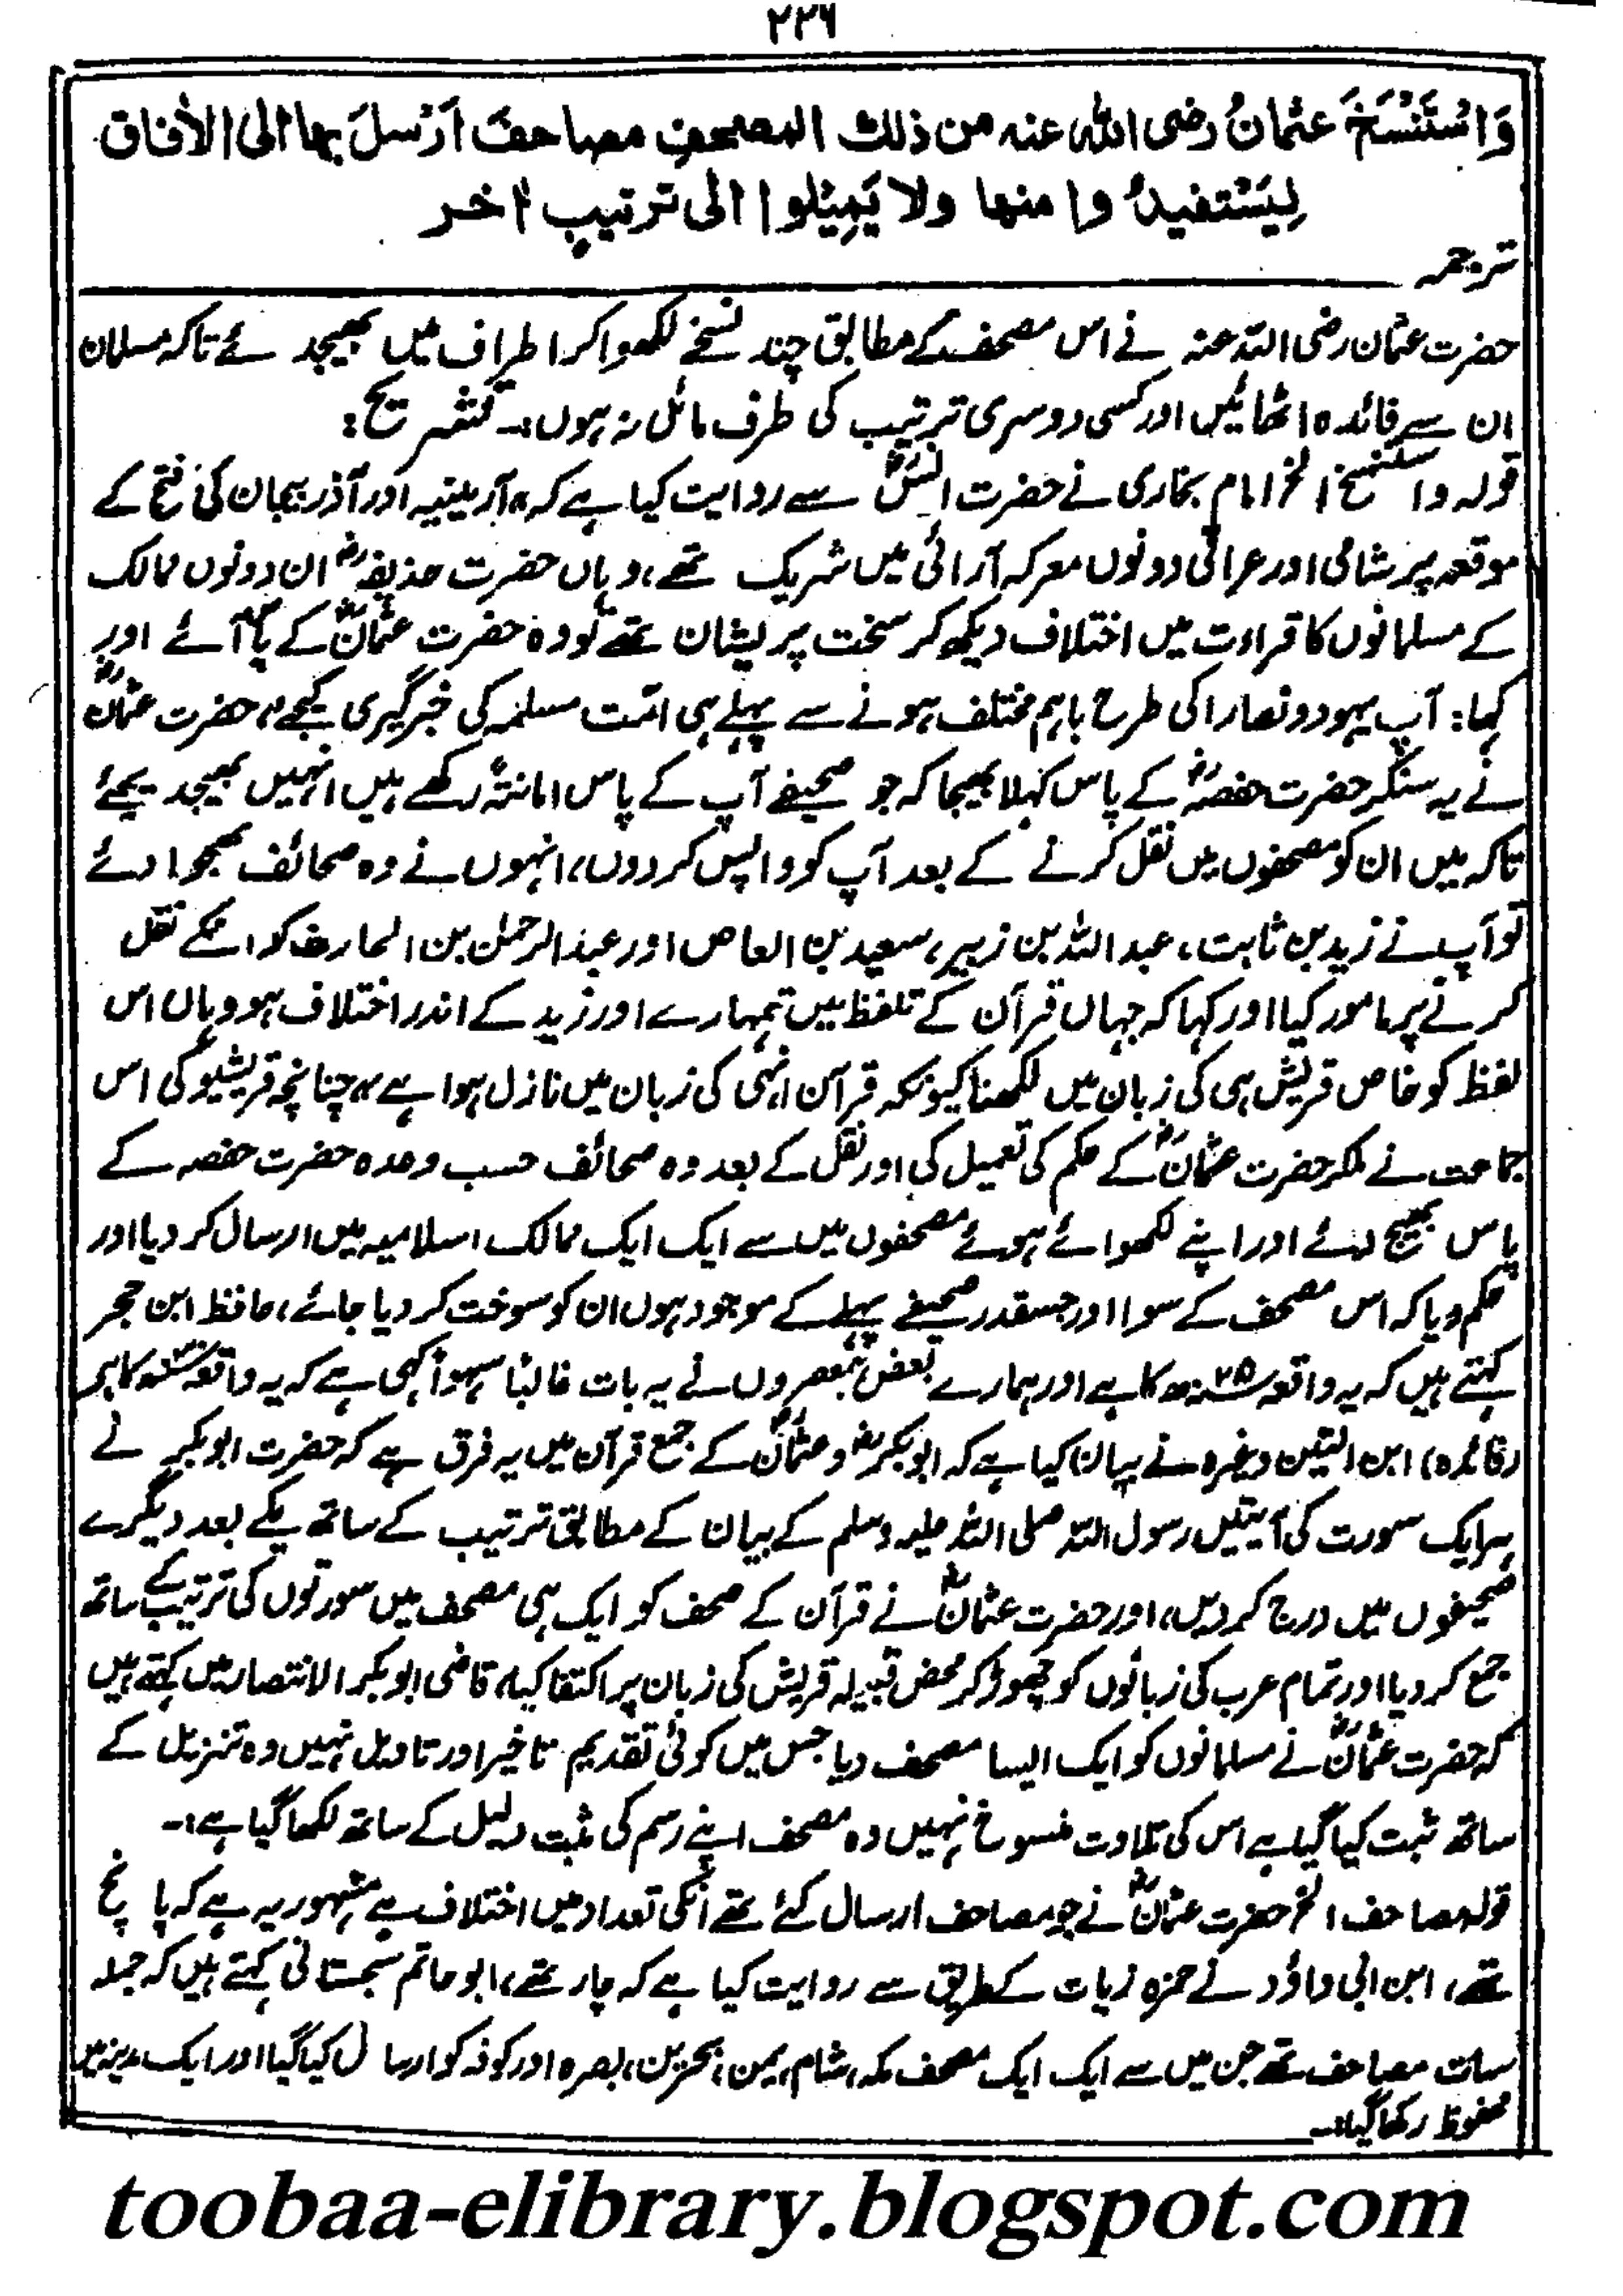 ۲۲٦
وَاسْتَنْسَخَ عثمانُ رضی اللہ عنہ من ذلك المصحفِ مصاحفَ اَرْسلَ بها الی الاٰفاق
لِيَسْتفيدُوا منها ولا يَمِيْلوا الی ترتيبٍ اٰخر
ترجمہ
حضرت عثمان رضی اللہ عنہ نے اس مصحف کے مطابق چند نسخے لکھوا کر اطراف میں بھیجد ئے تاکہ مسلمان
ان سے فائدہ اٹھائیں اور کسی دوسری ترتیب کی طرف مائل نہ ہوں:۔ تشریح:
قولہ واستنسخ الخ امام بخاری نے حضرت انسؓ سے روایت کیا ہے کہ "آرمینیہ اور آذربیجان کی فتح کے
موقعہ پر شامی اور عراقی دونوں معرکہ آرائی میں شریک تھے، وہاں حضرت حذیفہؓ ان دونوں ممالک
کے مسلمانوں کا قراءت میں اختلاف دیکھ کر سخت پریشان تھے تو وہ حضرت عثمانؓ کے پاس آئے اور
کہا: آپ یہود و نصارا کی طرح باہم مختلف ہونے سے پہلے ہی امّت مسلمہ کی خبر گیری کیجے"، حضرت عثمانؓ
نے یہ سنکر حضرت حفصہؓ کے پاس کہلا بھیجا کہ جو صحیفے آپ کے پاس امانتہً رکھے ہیں انہیں بھیجد یجئے
تاکہ میں ان کو مصحفوں میں نقل کرنے کے بعد آپ کو واپس کردوں، انہوں نے وہ صحائف بھجوا دئے
تو آپ نے زید بن ثابت، عبد اللہ بن زبیر، سعید بن العاص اور عبد الرحمٰن بن الحارث کو انکے نقل
کرنے پر مامور کیا اور کہا کہ جہاں قرآن کے تلفظ میں تمہارے اور زید کے اندر اختلاف ہو وہاں اس
لفظ کو خاص قریش ہی کی زبان میں لکھنا کیونکہ قرآن انہی کی زبان میں نازل ہوا ہے"، چنانچہ قریشیو کی اس
جماعت نے ملکر حضرت عثمانؓ کے حکم کی تعمیل کی اور نقل کے بعد وہ صحائف حسب وعدہ حضرت حفصہ کے
پاس بھیج دئے اور اپنے لکھوائے ہوئے مصحفوں میں سے ایک ایک ممالک اسلامیہ میں ارسال کر دیا اور
حکم دیا کہ اس مصحف کے سوا اور جسقدر صحیفے پہلے کے موجود ہوں ان کو سوخت کر دیا جائے، حافظ ابن حجر
کہتے ہیں کہ یہ واقعہ ۲۵ھ کا ہے اور ہمارے بعض ہمعصروں نے یہ بات غالبًا سہواً کہی ہے کہ یہ واقعہ کا ہے
(فائدہ) ابن التین وغیرہ نے بیان کیا ہے کہ ابوبکرؓ و عثمانؓ کے جمع قرآن میں یہ فرق ہے کہ حضرت ابوبکر نے
ہر ایک سورت کی آیتیں رسول اللہ صلی اللہ علیہ وسلم کے بیان کے مطابق ترتیب کے ساتھ یکے بعد دیگرے
صحیفوں میں درج کردیں، اور حضرت عثمانؓ نے قرآن کے صحف کو ایک ہی مصحف میں سورتوں کی ترتیب کے ساتھ
جمع کر دیا اور تمام عرب کی زبانوں کو چھوڑ کر محض قبیلہ قریش کی زبان پر اکتفا کیا، قاضی ابوبکر الانتصار میں کہتے ہیں
کہ حضرت عثمانؓ نے مسلمانوں کو ایک ایسا مصحف دیا جس میں کوئی تقدیم تاخیر اور تاویل نہیں وہ تنزیل کے
ساتھ ثبت کیا گیا ہے اس کی تلاوت منسوخ نہیں وہ مصحف اپنے رسم کی مثبت دلیل کے ساتھ لکھا گیا ہے:۔
قولہ مصاحف الخ حضرت عثمانؓ نے جو مصاحف ارسال کئے تھے انکی تعداد میں اختلاف ہے مشہور یہ ہے کہ پانچ
تھے، ابن ابی داؤد نے حمزہ زیات کے طریق سے روایت کیا ہے کہ چار تھے، ابو حاتم سجستانی کہتے ہیں کہ جملہ
سات مصاحف تھے جن میں سے ایک ایک مصحف مکہ، شام، یمن، بحرین، بصرہ اور کوفہ کو ارسال کیا گیا اور ایک مدینہ میں
محفوظ رکھا گیا:۔
toobaa-elibrary.blogspot.com